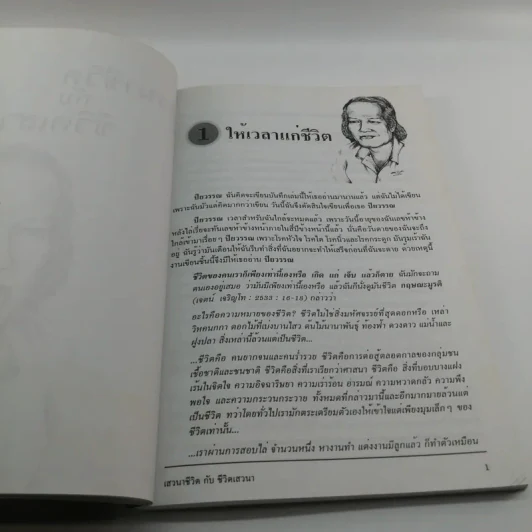 1 ให้เวลาแก่ชีวิต
ปิยวรรณ ฉันคิดจะเขียนบันทึกเล่มนี้ให้เธออ่านนานแล้ว แต่ฉันไม่ได้เขียน
เพราะฉันมัวแต่คิดมากกว่าเขียน วันนี้ฉันจึงตัดสินใจเขียนเพื่อเธอ ปิยวรรณ
ปิยวรรณ เวลาสำหรับฉันใกล้จะหมดแล้ว เพราะวันนี้อายุของฉันเลขห้าข้าง
หลังไล่เรื่อยจะทันเลขห้าข้างหน้าภายในสี่ปีข้างหน้านี้แล้ว นั่นคือวันตายของฉันจะถึง
ใกล้เข้ามาเรื่อยๆ ปิยวรรณ เพราะโรคหัวใจ โรคไต โรคนิ่วและโรคกระดูก ฉันรุมเร้าฉัน
อยู่ ฉันรู้ว่ามันเตือนให้ฉันรีบทำสิ่งที่ฉันอยากจะทำให้เสร็จก่อนที่ฉันจะตาย ด้วยเหตุนี้
งานเขียนชิ้นนี้จึงมีให้เธออ่าน ปิยวรรณ
ชีวิตของคนเราก็เพียงเท่านี้เองหรือ เกิด แก่ เจ็บ แล้วก็ตาย ฉันมักจะถาม
ตนเองอยู่เสมอ ว่ามันมีเพียงเท่านี้เองหรือ แล้วฉันก็นั่งดูมันชีวิต กฤษณะมูรติ
(เจตน์ เจริญโท : 2533 : 16-18) กล่าวว่า
อะไรคือความหมายของชีวิต? ชีวิตไม่ใช่สิ่งมหัศจรรย์ที่สุดดอกหรือ เหล่า
วิหคนกกา ดอกไม้ที่เบ่งบานไสว ต้นไม้นานาพันธุ์ ท้องฟ้า ดวงดาว แม่น้ำและ
ฝูงปลา สิ่งเหล่านี้ล้วนแต่เป็นชีวิต...
...ชีวิตคือ คนยากจนและคนร่ำรวย ชีวิตคือการต่อสู้ตลอดกาลของกลุ่มชน
เชื้อชาติและชนชาติ ชีวิตคือสิ่งที่เราเรียกว่าศาสนา ชีวิตคือ สิ่งที่แอบบางแฝง
เร้นในจิตใจ ความอิจฉาริษยา ความเร่าร้อน อารมณ์ ความหวาดกลัว ความพึง
พอใจ และความกระวนกระวาย ทั้งหมดที่กล่าวมานี้และอีกมากมายล้วนแต่
เป็นชีวิต ทว่าโดยทั่วไปเรามักตระเตรียมตัวเองให้เข้าใจแต่เพียงมุมเล็กๆ ของ
ชีวิตเท่านั้น...
...เราผ่านการสอบไล่ จำนวนหนึ่ง หางานทำ แต่งงานมีลูกแล้ว ก็ทำตัวเหมือน
เสวนาชีวิต กับ ชีวิตเสวนา
1